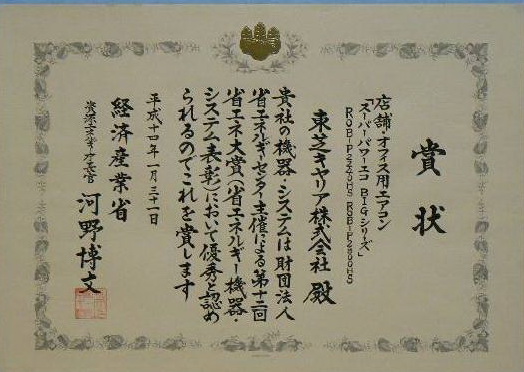 賞状
店舗・オフィス用エアコン
「スーパーパワーエコBIGシリーズ」
東芝キヤリア株式会社 殿
貴社の機器・システムは財団法人
省エネルギーセンター主催による第十二回
省エネ大賞(省エネルギー機器・
システム表彰)において優秀と認め
られるのでこれを賞します
平成十四年一月三十一日
経済産業省
河野博文